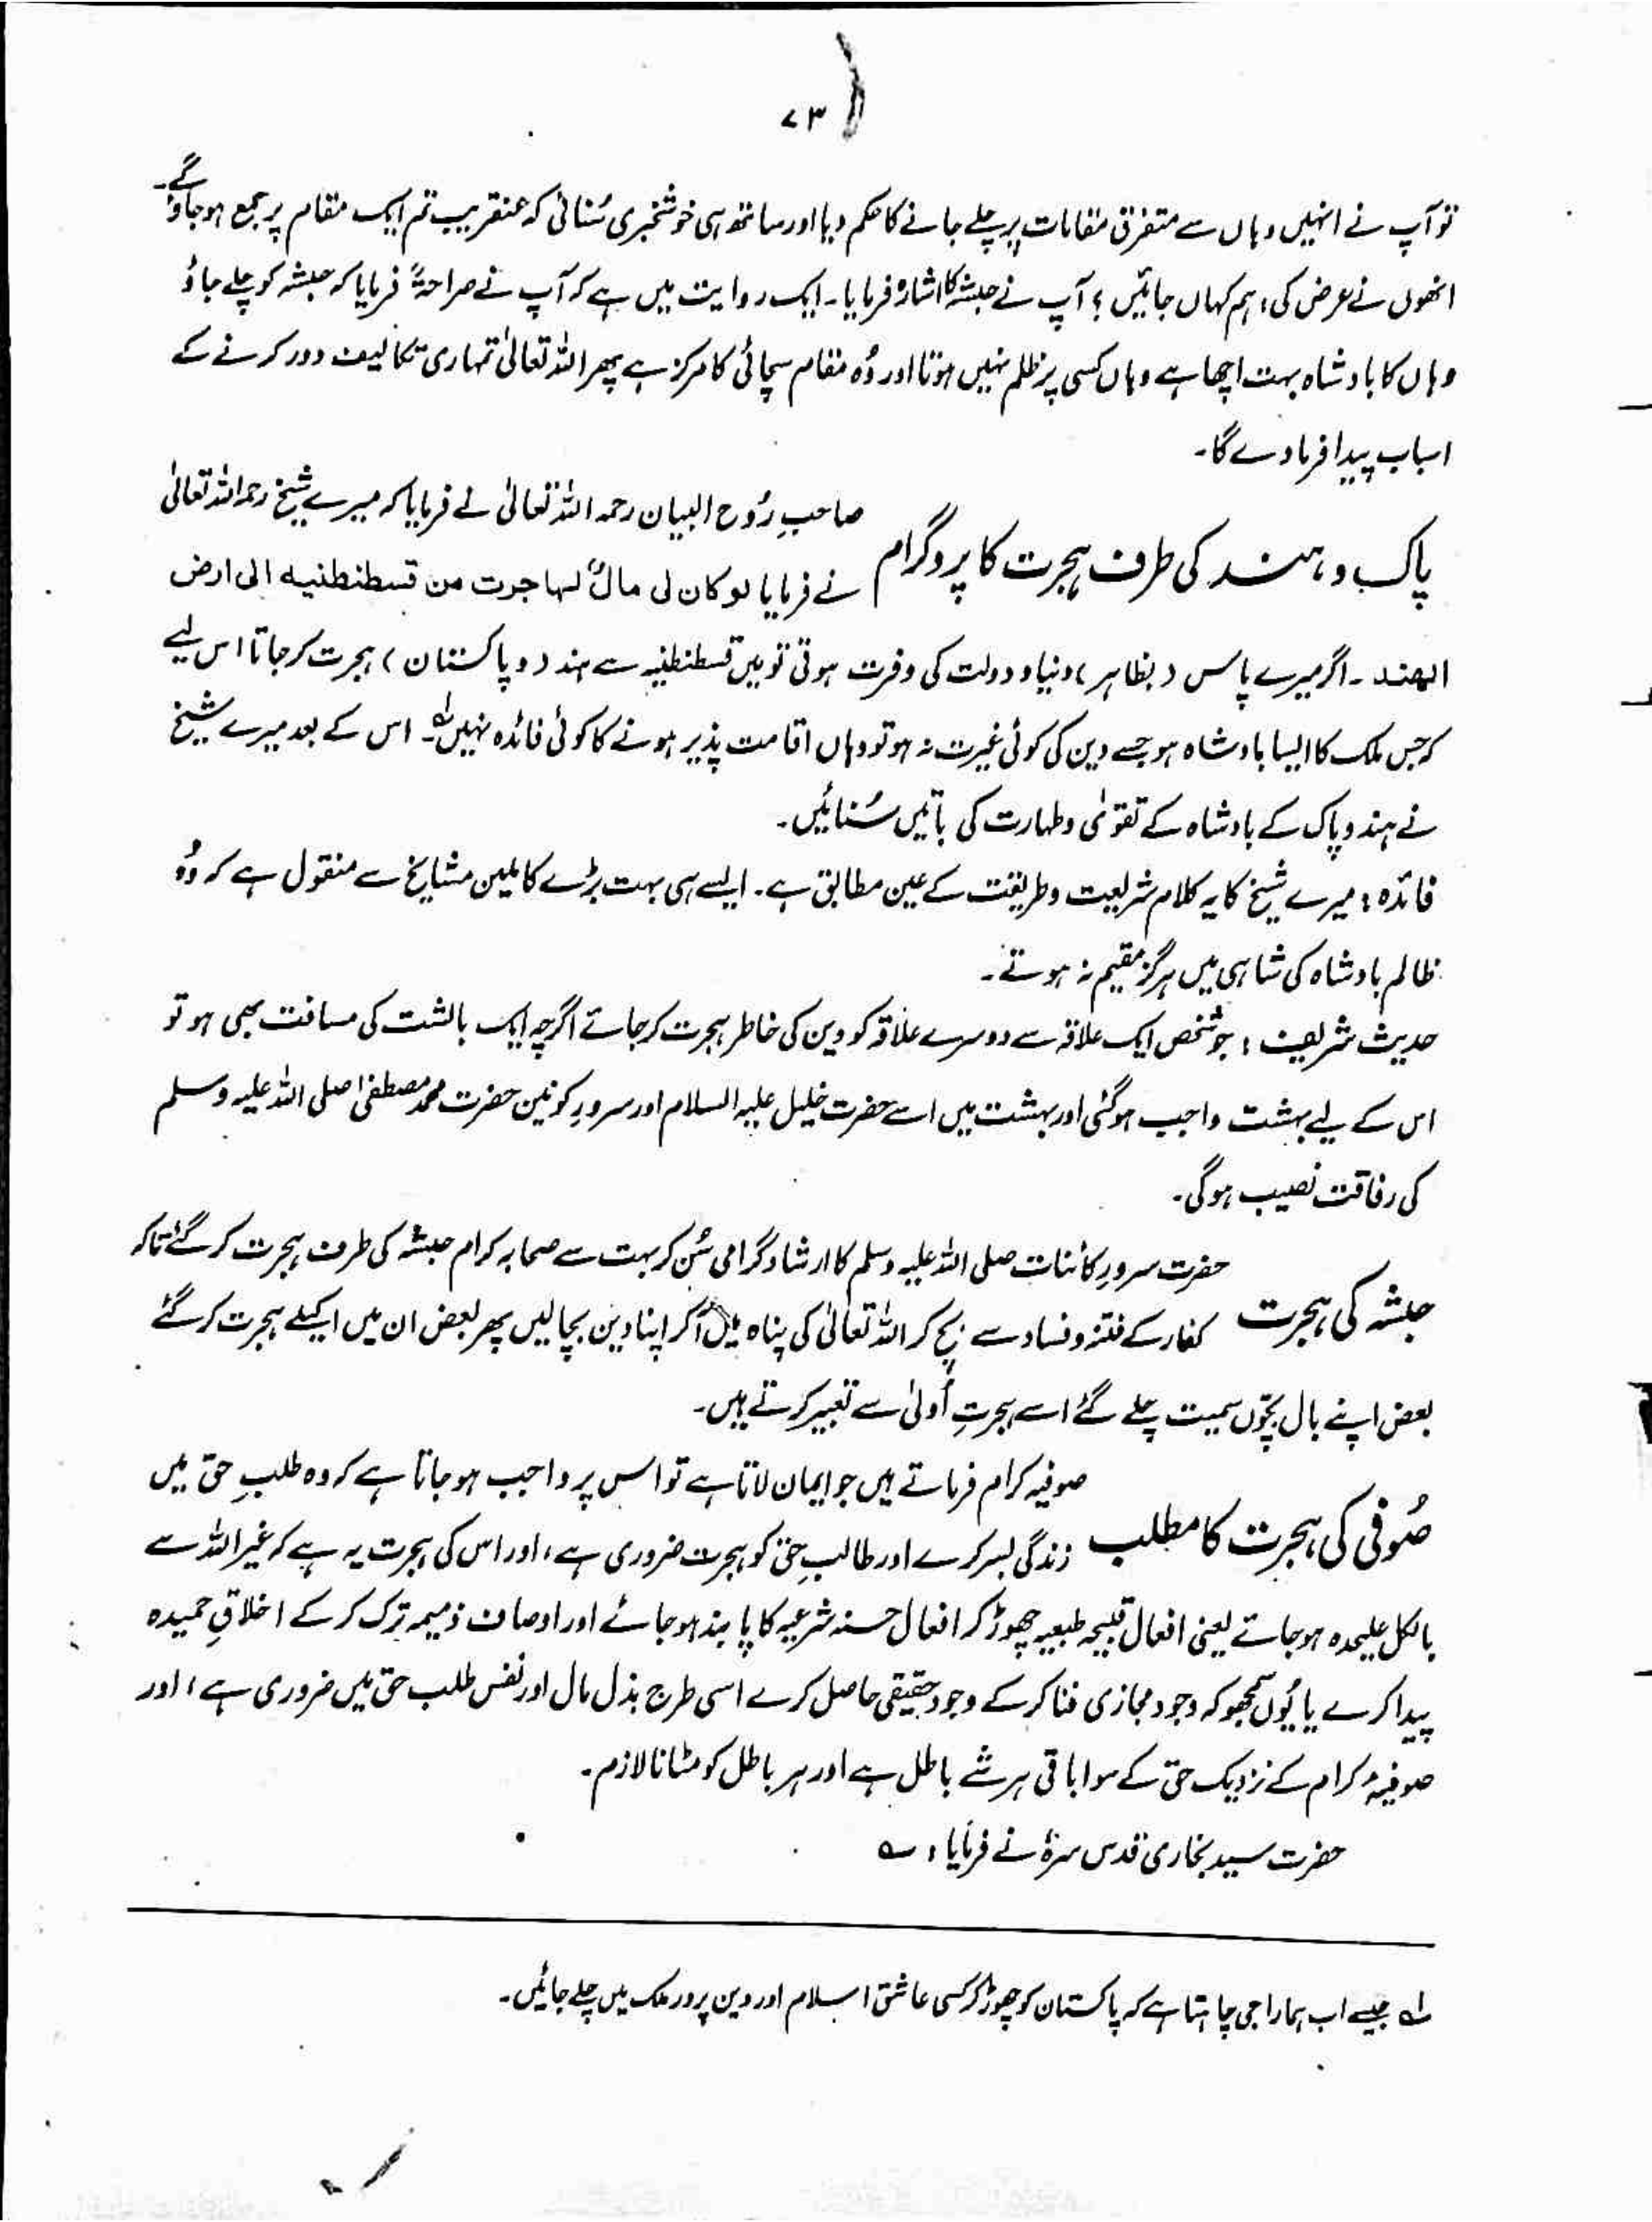 ۷۳
تو آپ نے انہیں وہاں سے متفرق مقامات پر چلے جانے کا حکم دیا اور ساتھ ہی خوشخبری سُنائی کہ عنقریب تم ایک مقام پر جمع ہو جاؤ گے۔
انھوں نے عرض کی، ہم کہاں جائیں؟ آپ نے حبشہ کا اشارہ فرمایا۔ ایک روایت میں ہے کہ آپ نے صراحۃً فرمایا کہ حبشہ کو چلے جاؤ
وہاں کا بادشاہ بہت اچھا ہے وہاں کسی پر ظلم نہیں ہوتا اور وُہ مقام سچائی کا مرکز ہے پھر اللہ تعالیٰ تمہاری تکالیف دور کرنے کے
اسباب پیدا فرما دے گا۔
پاک و ہند کی طرف ہجرت کا پروگرام
صاحبِ رُوح البیان رحمہ اللہ تعالیٰ نے فرمایا کہ میرے شیخ رحمہ اللہ تعالیٰ
نے فرمایا لو کان لی مالٌ لہاجرت من قسطنطنیہ الی ارض
الھند۔ اگر میرے پاس (بظاہر) دنیا و دولت کی وفرت ہوتی تو میں قسطنطنیہ سے ہند (و پاکستان) ہجرت کر جاتا اس لیے
کہ جس ملک کا ایسا بادشاہ ہو جسے دین کی کوئی غیرت نہ ہو تو وہاں اقامت پذیر ہونے کا کوئی فائدہ نہیں۔ لہ اس کے بعد میرے شیخ
نے ہند و پاک کے بادشاہ کے تقویٰ و طہارت کی باتیں سُنائیں۔
فائدہ: میرے شیخ کا یہ کلام شریعت و طریقت کے عین مطابق ہے۔ ایسے ہی بہت بڑے کاملین مشایخ سے منقول ہے کہ وُہ
ظالم بادشاہ کی شاہی میں ہرگز مقیم نہ ہوتے۔
حدیث شریف: جو شخص ایک علاقہ سے دوسرے علاقہ کو دین کی خاطر ہجرت کر جائے اگرچہ ایک بالشت کی مسافت بھی ہو تو
اس کے لیے بہشت واجب ہو گئی اور بہشت میں اسے حضرت خلیل علیہ السلام اور سرورِ کونین حضرت محمد مصطفیٰ صلی اللہ علیہ وسلم
کی رفاقت نصیب ہو گی۔
حبشہ کی ہجرت
حضرت سرورِ کائنات صلی اللہ علیہ وسلم کا ارشاد گرامی سُن کر بہت سے صحابہ کرام حبشہ کی طرف ہجرت کر گئے تاکہ
کفار کے فتنہ و فساد سے بچ کر اللہ تعالیٰ کی پناہ میں آ کر اپنا دین بچا لیں پھر بعض ان میں اکیلے ہجرت کر گئے
بعض اپنے بال بچّوں سمیت چلے گئے اسے ہجرتِ اُولیٰ سے تعبیر کرتے ہیں۔
صُوفی کی ہجرت کا مطلب
صوفیہ کرام فرماتے ہیں جو ایمان لاتا ہے تو اس پر واجب ہو جاتا ہے کہ وہ طلبِ حق میں
زندگی بسر کرے اور طالبِ حق کو ہجرت ضروری ہے، اور اس کی ہجرت یہ ہے کہ غیر اللہ سے
بالکل علیحدہ ہو جائے یعنی افعال قبیحہ طبعیہ چھوڑ کر افعال حسنہ شرعیہ کا پابند ہو جائے اور اوصاف ذمیمہ ترک کر کے اخلاقِ حمیدہ
پیدا کرے یا یُوں سمجھو کہ وجود مجازی فنا کر کے وجود حقیقی حاصل کرے اسی طرح بذل مال اور نفس طلب حق میں ضروری ہے، اور
صوفیۂ کرام کے نزدیک حق کے سوا باقی ہر شے باطل ہے اور ہر باطل کو مٹانا لازم۔
حضرت سید بخاری قدس سرہٗ نے فرمایا: ؎
لہ جیسے اب ہمارا جی چاہتا ہے کہ پاکستان کو چھوڑ کر کسی عاشق اسلام اور دین پرور ملک میں چلے جائیں۔